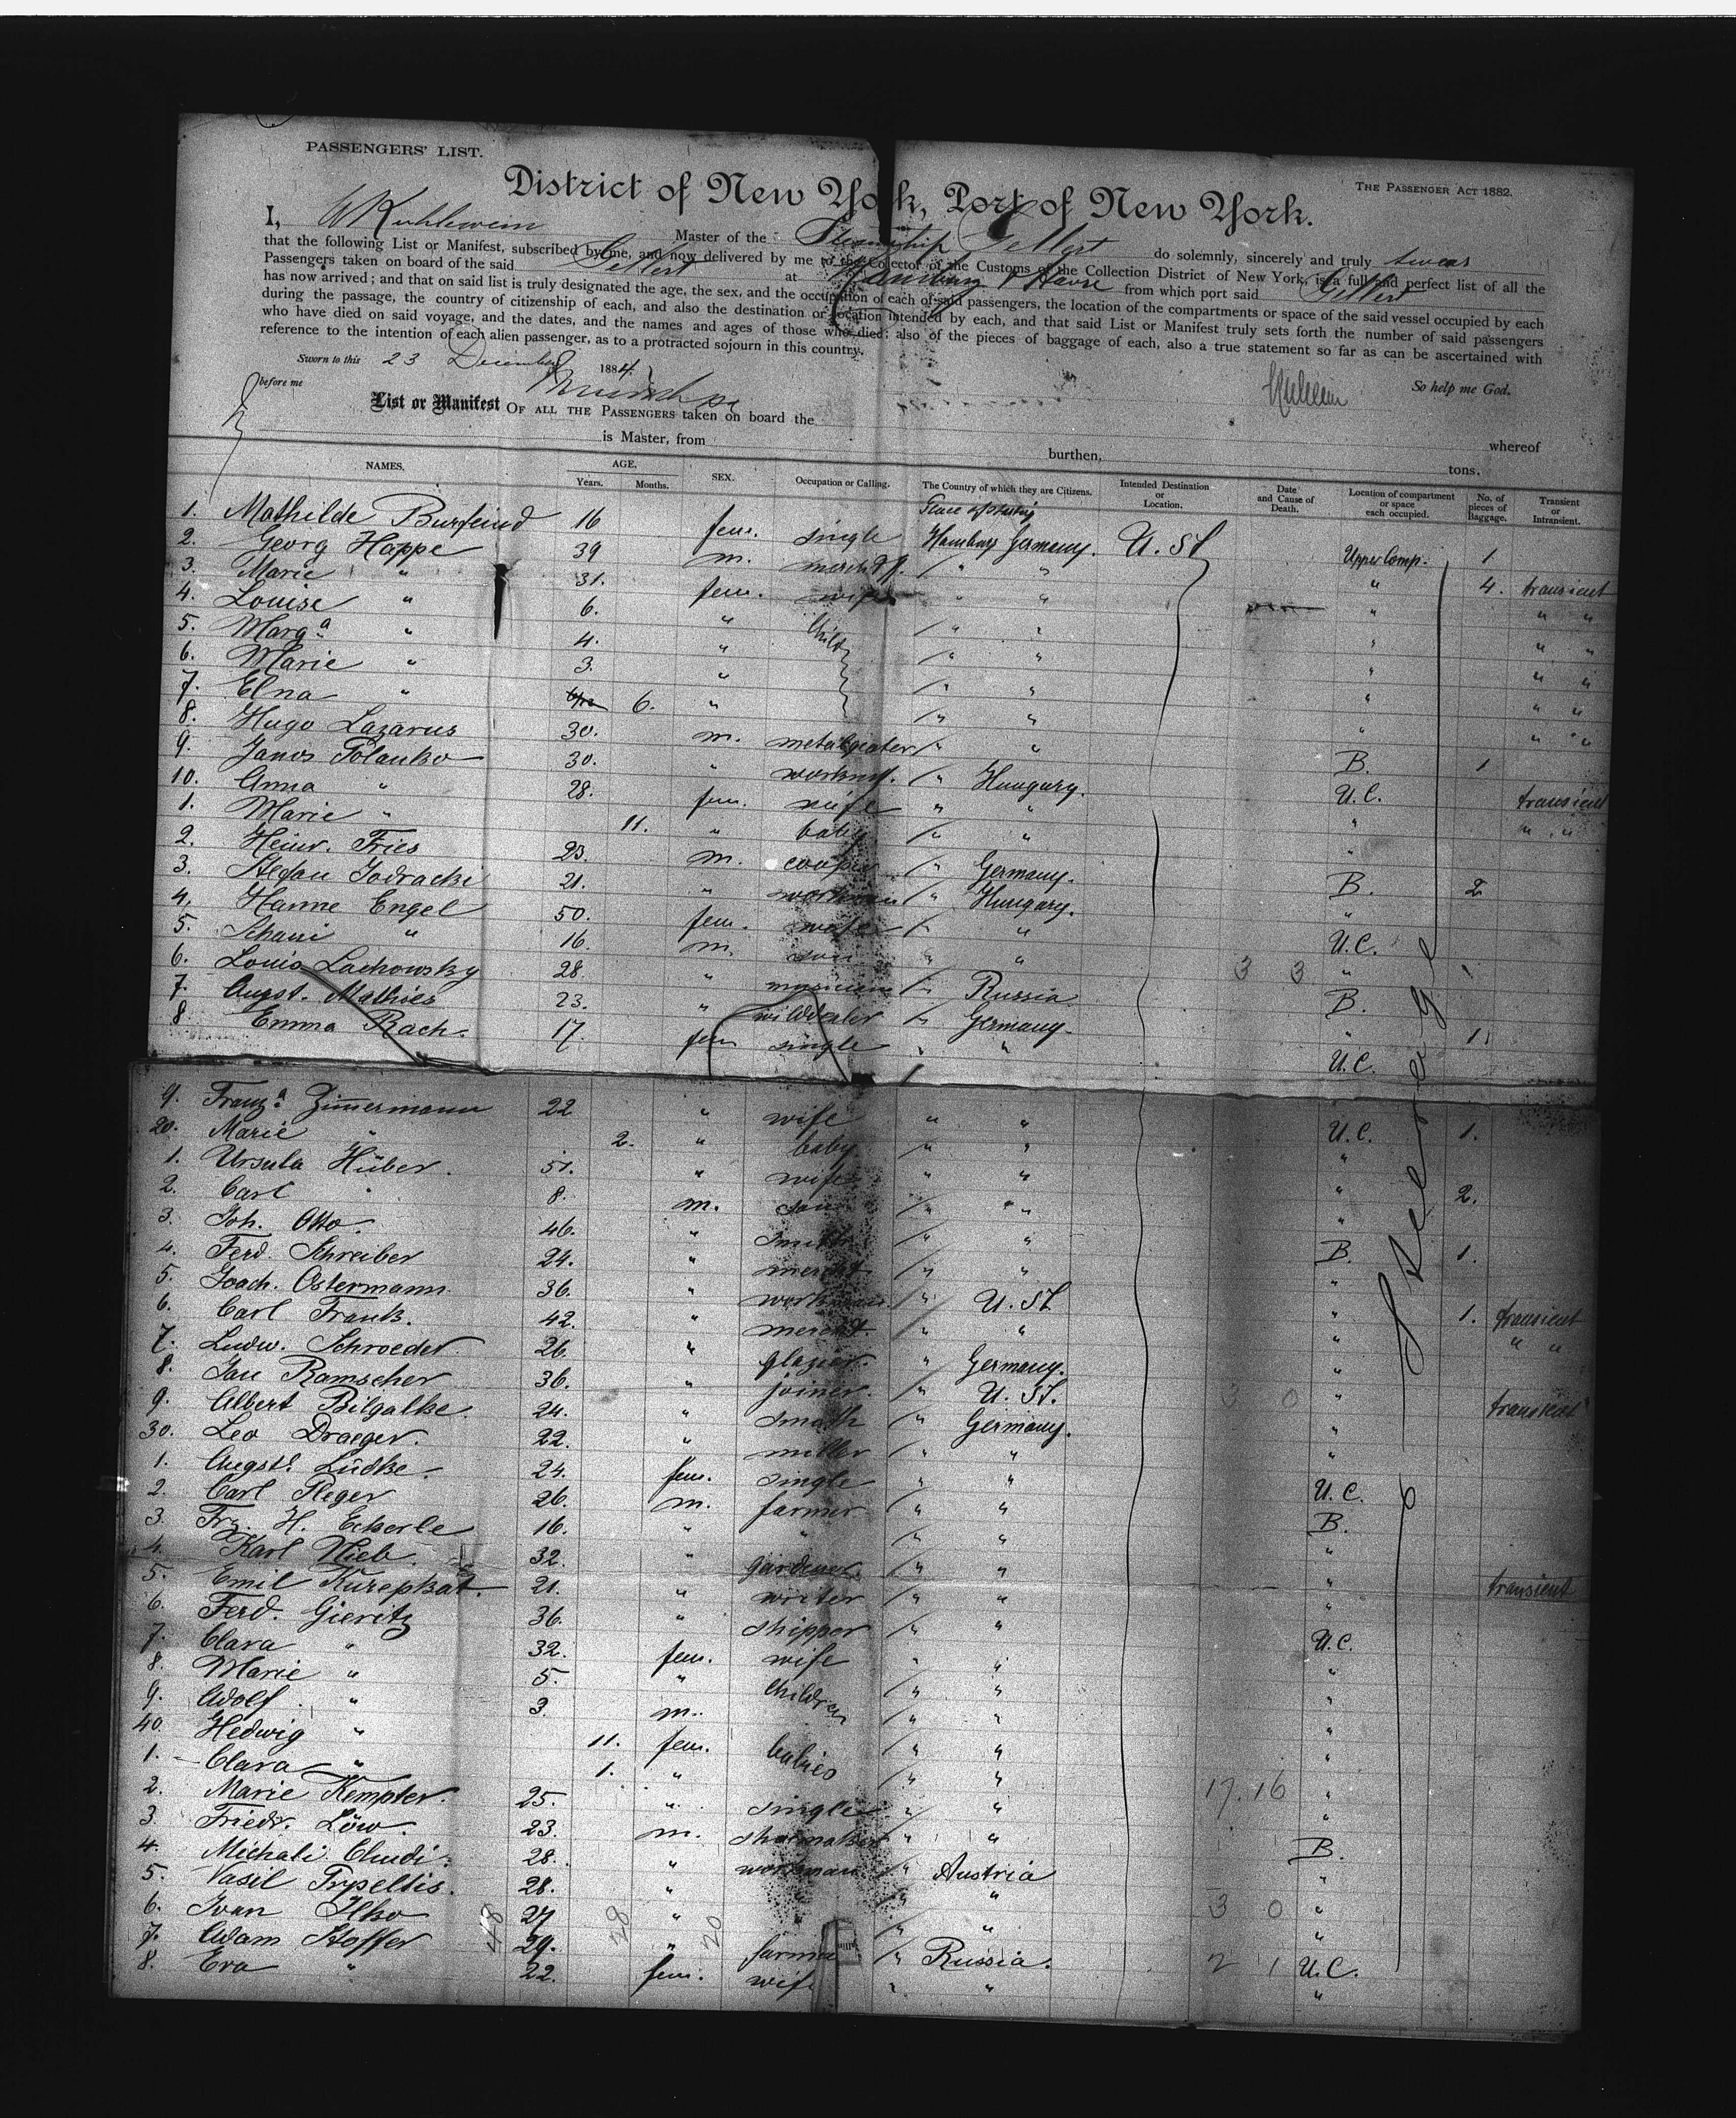 PASSENGERS' LIST.
THE PASSENGER ACT 1882.
District of New York, Port of New York.
I, W Kuhlewein Master of the Steamship Gellert do solemnly, sincerely and truly swear
that the following List or Manifest, subscribed by me, and now delivered by me to the Collector of the Customs of the Collection District of New York, is a full and perfect list of all the
Passengers taken on board of the said Gellert at Hamburg & Havre from which port said Gellert
has now arrived; and that on said list is truly designated the age, the sex, and the occupation of each of said passengers, the location of the compartments or space of the said vessel occupied by each
during the passage, the country of citizenship of each, and also the destination or location intended by each, and that said List or Manifest truly sets forth the number of said passengers
who have died on said voyage, and the dates, and the names and ages of those who died; also of the pieces of baggage of each, also a true statement so far as can be ascertained with
reference to the intention of each alien passenger, as to a protracted sojourn in this country.
Sworn to this 23 December 1884
So help me God.
before me
List or Manifest OF ALL THE PASSENGERS taken on board the
whereof
is Master, from burthen, tons.
NAMES. AGE. Years. Months. SEX. Occupation or Calling. The Country of which they are Citizens. Intended Destination or Location. Date and Cause of Death. Location of compartment or space each occupied. No. of pieces of Baggage. Transient or Intransient.
1. Mathilde Burfeind 16 fem. single Hamburg Germany. U. St Upper Comp. 1
2. Georg Happe 39 m. " " " 4. transient
3. Marie " 31. fem. wife " " " " "
4. Louise " 6. " Child " " " " "
5. Marg.a " 4. " " " " " "
6. Marie " 3. " " " " " "
7. Elna " 6. " " " " " "
8. Hugo Lazarus 30. m. " " B. 1
9. Janos Polanko 30. " workm. " Hungary. U.C. transient
10. Anna " 28. fem. wife " " " " "
1. Marie " 11. " baby " " "
2. Heinr. Fries 23. m. cooper " Germany. B. 2
3. Stefan Jodracki 21. " workman " Hungary. "
4. Hanne Engel 50. fem. wife " " U.C.
5. Schani " 16. m. son " " 3 3 "
6. Louis Lachowsky 28 " musician " Russia B.
7. Augst. Mathies 23. " " Germany. " 1.
8 Emma Rach. 17. fem single " " U.C.
9. Franz.a Zimmermann 22 " wife " " U.C. 1.
20. Marie " 2. " baby " " "
1. Ursula Hüber. 51. " wife " " " 2.
2. Carl " 8. m. son " " "
3. Joh. Otto. 46. " smith " " B. 1.
4. Ferd. Schreiber 24. " mercht " " "
5. Joach. Ostermann. 36. " workman. " U. St. " 1. transient
6. Carl Frank. 42. " mercht. " " " " "
7. Ludw. Schroeder. 26. " glazier. " Germany. "
8. Jan Ramscher 36. " joiner. " U. St. 3 0 " transient
9. Albert Bilgalke. 24. " smith " Germany. "
30. Leo Draeger. 22. " miller " " "
1. Augste. Lüdke. 24. fem. single " " U.C.
2. Carl Pleger 26. m. farmer " " B.
3. Frz. H. Eckerle 16. " " " " "
4. Karl Wieb. 32. " gardener. " " " transient
5. Emil Kurepkat. 21. " writer " " "
6. Ferd. Gieritz 36. " shipper " " U.C.
7. Clara " 32. fem. wife " " "
8. Marie " 5. " Children " " "
9. Adolf. " 3. m. " " "
40. Hedwig " 11. fem. babies " " "
1. Clara " 1. " " " 17. 16 "
2. Marie Kempter. 25. " single " " "
3. Friedr. Löw. 23. m. shoemaker " " B.
4. Michali Chudi. 28. " workman " Austria "
5. Vasil Trypeltis. 28. " " " " 3 0 "
6. Ivan Ilko 27 " " " " "
7. Adam Stoffer 29. " farmer " Russia. 2 1 U.C.
8. Eva " 22. fem. wife " " "
48 28 20
Steerage